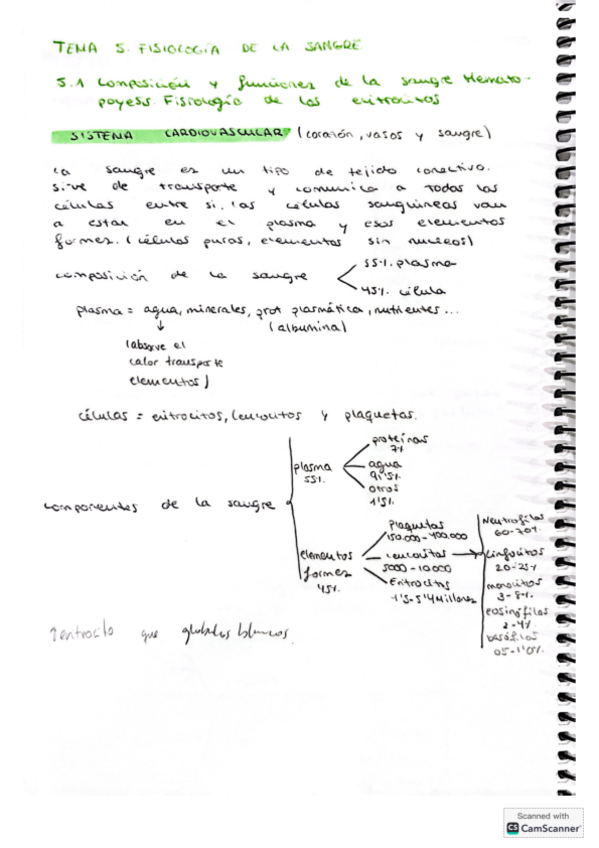 TEMA 5. FISIOLOGÍA DE LA SANGRE
5.1 Composición y funciones de la sangre Hemato-
poyesis. Fisiología de los eritrocitos
SISTEMA CARDIOVASCULAR (corazón, vasos y sangre)
La sangre es un tipo de tejido conectivo.
Sirve de transporte y comunica a todas las
células entre sí. Las células sanguineas van
a estar en el plasma y esos elementos
formes. (células puras, elementos sin nucleos)
composición de la sangre
55%. plasma
45%. célula
plasma = agua, minerales, prot plasmática, nutrientes...
(albumina)
(absorve el
calor transporte
elementos)
células = eritrocitos, leucocitos y plaquetas.
componentes de la sangre
plasma
55%.
proteínas
7%
agua
91'5%
otros
1'5%
elementos
formes
45%
Plaquetas
150.000-400.000
Leucocitos
5000-10000
Eritrocitos
Neutrofilos
60-70%
Linfocitos
20-25%
monocitos
3-8%
eosinófilos
2-4%
basófilos
05-1'0%.
que globulos blancos.
Scanned with
CS CamScanner